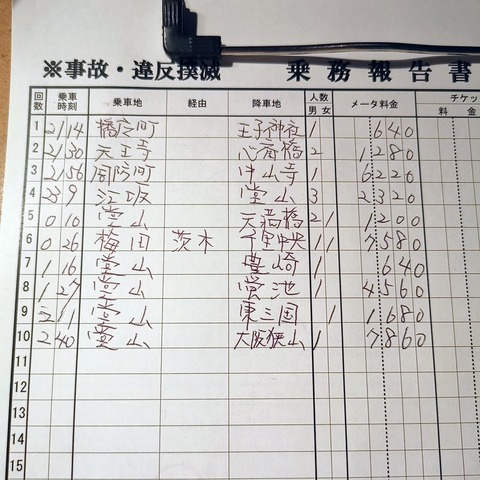 ※事故・違反撲滅 乗務報告書
回数 乗車時刻 乗車地 経由 降車地 人数 男 女 メータ料金 チケッ 料 金
1 21 14 播磨町 王子神社 1 640
2 21 30 天王寺 心斎橋 2 1280
3 21 56 周防町 中山寺 1 6220
4 23 9 江坂 堂山 3 2320
5 0 10 堂山 天満橋 2 1 1200
6 0 26 梅田 茨木 千里中央 1 1 7580
7 1 16 堂山 豊崎 1 640
8 1 27 堂山 蛍池 1 4560
9 2 11 堂山 東三国 1 1680
10 2 40 堂山 大阪狭山 1 7860
11
12
13
14
15